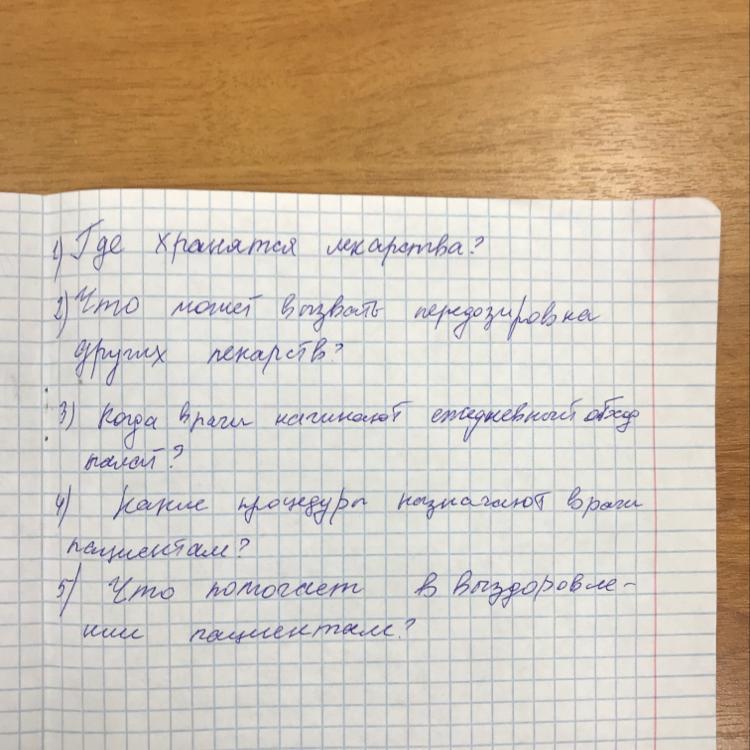 1) Где хранятся лекарства?
2) Что может вызвать передозировка
других лекарств?
3) Когда врачи начинают ежедневный обход
палат?
4) Какие процедуры назначают врачи
пациентам?
5) Что помогает в выздоровле-
нии пациентам?